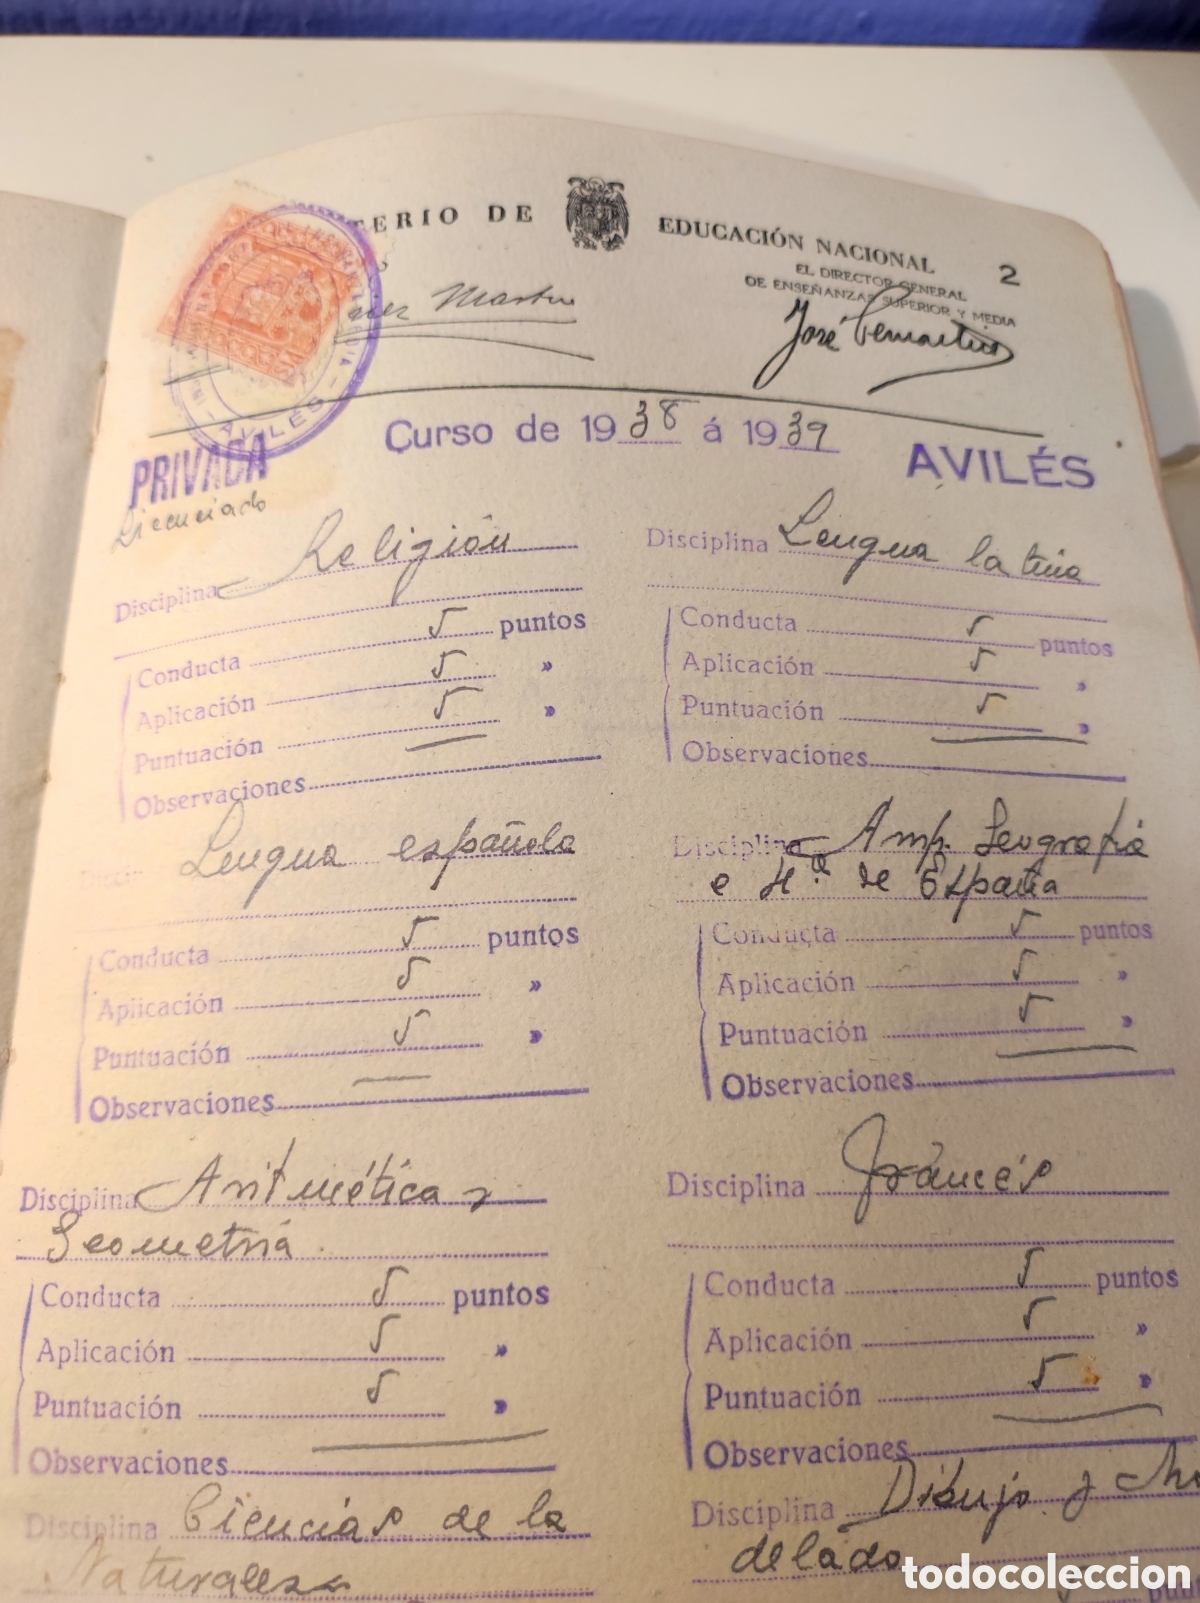 TERIO DE EDUCACIÓN NACIONAL 2
EL DIRECTOR GENERAL
DE ENSEÑANZAS SUPERIOR Y MEDIA
José Pemartín
Martin
AVILÉS
Curso de 1938 á 1939
AVILÉS
PRIVADA
Licenciado
Disciplina Religión
Conducta 5 puntos
Aplicación 5 »
Puntuación 5 »
Observaciones
Disciplina Lengua latina
Conducta 5 puntos
Aplicación 5 »
Puntuación 5 »
Observaciones
Discip Lengua española
Conducta 5 puntos
Aplicación 5 »
Puntuación 5 »
Observaciones
Disciplina Amp. Geografía
e Hª. de España
Conducta 5 puntos
Aplicación 5 »
Puntuación 5 »
Observaciones
Disciplina Aritmética y
Geometría
Conducta 5 puntos
Aplicación 5 »
Puntuación 5 »
Observaciones
Disciplina Francés
Conducta 5 puntos
Aplicación 5 »
Puntuación 5 »
Observaciones
Disciplina Ciencias de la
Naturaleza
Disciplina Dibujo y Mo
delado
todocoleccion